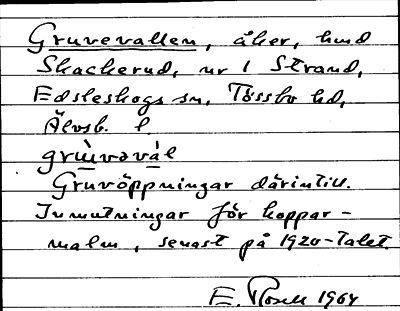 Gruvevallen, åker, hmd
Skackerud, nr 1 Strand,
Edsleskogs sn, Tössbo hd,
Älvsb. l.
grùvəvàl
Gruvöppningar därintill.
Inmutningar för koppar-
malm, senast på 1920-talet.
E. 1964